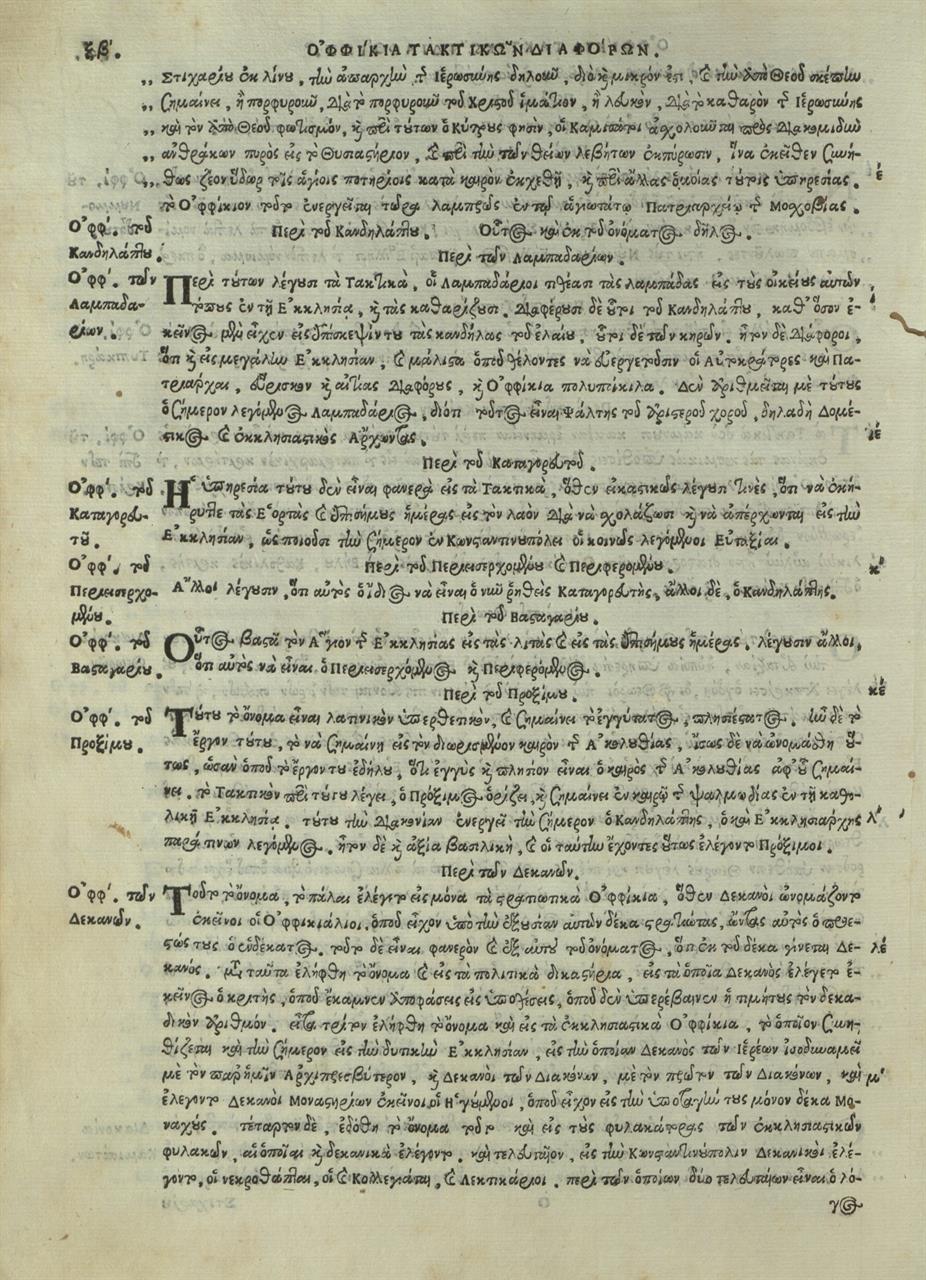 ξβ'. ὈΦΦΙΚΙΑ ΤΑΚΤΙΚΩΝ ΔΙΑΦΟΡΩΝ.
„ Στιχαρίου ἐκ λίνου, τὴν ἀπαρχὴν τῆς Ἱερωσύνης δηλοῦν, διὸ καὶ μικρόν ἐστι, καὶ τὴν ἀπὸ Θεοῦ σκέπην
„ σημαίνει, ἢ πορφυροῦν, διὰ τὸ πορφυροῦν τοῦ Χριστοῦ ἱμάτιον, ἢ λευκὸν, διὰ τὸ καθαρὸν τῆς Ἱερωσύνης
„ καὶ τὸν ἀπὸ Θεοῦ φωτισμόν, καὶ περὶ τούτων ὁ Κύτρους φησὶν, οἱ Καμισάτοι ἀσχολοῦνται πρὸς διακομιδὴν
„ ἀνθράκων πυρὸς εἰς τὸ Θυσιαστήριον, καὶ περὶ τὴν τῶν θείων λεβήτων ἐκπύρωσιν, ἵνα ἐκεῖθεν συνή-
„ θως ζέον ὕδωρ τοῖς ἁγίοις ποτηρίοις κατὰ καιρὸν ἐκχεθῇ, καὶ περὶ ἄλλας ὁμοίας τούτοις ὑπηρεσίας. έ
τὸ Ὀφφίκιον τοῦτο ἐνεργεῖται τώρα λαμπρῶς ἐν τῷ ἁγιωτάτῳ Πατριαρχείῳ τῆς Μοσχοβίας.
Ὀφφ'. τοῦ Κανδηλάπτου.
Περὶ τοῦ Κανδηλάπτου. Οὗτος καὶ ἐκ τοῦ ὀνόματος δῆλος.
Περὶ τῶν Λαμπαδαρίων.
Ὀφφ'. τῶν Λαμπαδαρίων.
Περὶ τούτων λέγουσι τὰ Τακτικὰ, οἱ Λαμπαδάριοι τιθέασι τὰς λαμπάδας εἰς τοὺς οἰκείους αὐτῶν
τόπους ἐν τῇ Ἐκκλησίᾳ, καὶ τὰς καθαρίζουσι. διαφέρουσι δὲ οὗτοι τοῦ Κανδηλάπτου, καθ' ὅσον ἐ-
κεῖνος μὲν εἶχεν εἰς ἐπίσκεψίν του τὰς κανδήλας τοῦ ἐλαίου, οὗτοι δὲ τῶν κηρῶν. ἦτον δὲ διάφοροι,
ὅτι καὶ εἰς μεγάλην Ἐκκλησίαν, καὶ μάλιστα ὁποῦ θέλοντες νὰ εὐεργετοῦσιν οἱ Αὐτοκράτορες καὶ Πα-
τριάρχαι, εὕρισκον καὶ αἰτίας διαφόρους, καὶ Ὀφφίκια πολυποίκιλα. Δὲν ἀριθμεῖται μὲ τούτους
ὁ σήμερον λεγόμενος Λαμπαδάριος, διότι τοῦτος εἶναι Ψάλτης τοῦ ἀριστεροῦ χοροῦ, δηλαδὴ Δομέ-
στικος καὶ ἐκκλησιαστικὸς Ἄρχοντας. ιέ
Περὶ τοῦ Καταγορευτοῦ.
Ὀφφ'. τοῦ Καταγορευτοῦ.
Ἡ ὑπηρεσία τούτου δὲν εἶναι φανερὰ εἰς τὰ Τακτικὰ, ὅθεν εἰκαστικῶς λέγουσι τινὲς, ὅτι νὰ ἐκή-
ρυττε τὰς Ἑορτὰς καὶ ἐπισήμους ἡμέρας εἰς τὸν λαὸν διὰ νὰ σχολάζωσι καὶ νὰ ἀπέρχωνται εἰς τὴν
Ἐκκλησίαν, ὡς ποιοῦσι τὴν σήμερον ἐν Κωνσταντινουπόλει οἱ κοινῶς λεγόμενοι Εὐταξίαι.
Ὀφφ'. τοῦ Περιεισερχομένου.
Περὶ τοῦ Περιεισερχομένου καὶ Περιφερομένου. κ'
Ἄλλοι λέγουσιν, ὅτι αὐτὸς ὁ ἴδιος νὰ εἶναι ὁ νῦν ῥηθεὶς Καταγορευτὴς, ἄλλοι δὲ, ὁ Κανδηλάπτης.
Περὶ τοῦ Βασταγαρίου.
Ὀφφ'. τοῦ Βασταγαρίου.
Οὗτος βαστᾷ τὸν Ἅγιον τῆς Ἐκκλησίας εἰς τὰς λιτὰς καὶ εἰς τὰς ἐπισήμους ἡμέρας. λέγουσιν ἄλλοι,
ὅτι αὐτὸς νὰ εἶναι ὁ Περιεισερχόμενος καὶ Περιφερόμενος.
Περὶ τοῦ Προξίμου. κέ
Ὀφφ'. τοῦ Προξίμου.
Τούτου τὸ ὄνομα εἶναι λατινικὸν ὑπερθετικὸν, καὶ σημαίνει τὸ ἐγγύτατος, πλησιέστατος. ἦν δὲ τὸ
ἔργον τούτου, τὸ νὰ σημαίνῃ εἰς τὸν διωρισμένον καιρὸν τῆς Ἀκολουθίας, ἴσως δὲ νὰ ὠνομάσθη οὕ-
τως, ὡσὰν ὁποῦ τὸ ἔργον του ἐδήλου, ὅτι ἐγγὺς καὶ πλησίον εἶναι ὁ καιρὸς τῆς Ἀκολουθίας ἀφ' οὗ σημαί-
νει. τὸ Τακτικὸν περὶ τούτου λέγει, ὁ Πρόξιμος ὁρίζει, καὶ σημαίνει ἐν καιρῷ τῆς ψαλμωδίας ἐν τῇ καθο-
λικῇ Ἐκκλησίᾳ. τούτου τὴν διακονίαν ἐνεργεῖ τὴν σήμερον ὁ Κανδηλάπτης, ὁ καὶ Ἐκκλησιάρχης λ'
παρά τινων λεγόμενος. ἦτον δὲ καὶ ἀξία βασιλικὴ, καὶ οἱ ταύτην ἔχοντες οὕτως ἐλέγοντο Πρόξιμοι.
Περὶ τῶν Δεκανῶν.
Ὀφφ'. τῶν Δεκανῶν.
Τοῦτο τὸ ὄνομα, τὸ πάλαι ἐλέγετο εἰς μόνα τὰ στρατιωτικὰ Ὀφφίκια, ὅθεν Δεκανοὶ ὠνομάζοντο
ἐκεῖνοι οἱ Ὀφφικιάλιοι, ὁποῦ εἶχον ὑπὸ τὴν ἐξουσίαν αὐτῶν δέκα στρατιώτας, ὄντας αὐτὸς ὁ προε-
στώς τους ὁ ἑνδέκατος. τοῦτο δὲ εἶναι φανερὸν καὶ ἐξ αὐτοῦ τοῦ ὀνόματος, ὅτι ἐκ τοῦ δέκα γίνεται Δε- λέ
κανός. μετὰ ταῦτα ἐλήφθη τὸ ὄνομα καὶ εἰς τὰ πολιτικὰ δικαστήρια, εἰς τὰ ὁποῖα Δεκανὸς ἐλέγετο ἐ-
κεῖνος ὁ κριτὴς, ὁποῦ ἔκαμνεν ἀποφάσεις εἰς ὑποθέσεις, ὁποῦ δὲν ὑπερέβαινεν ἡ τιμή τους τὸν δεκα-
δικὸν ἀριθμόν. εἶτα τρίτον ἐλήφθη τὸ ὄνομα καὶ εἰς τὰ ἐκκλησιαστικὰ Ὀφφίκια, τὸ ὁποῖον συνη-
θίζεται καὶ τὴν σήμερον εἰς τὴν δυτικὴν Ἐκκλησίαν, εἰς τὴν ὁποίαν Δεκανὸς τῶν Ἱερέων ἰσοδυναμεῖ
μὲ τὸν παρ' ἡμῖν Ἀρχιπρεσβύτερον, καὶ Δεκανοὶ τῶν Διακόνων, μὲ τὸν πρῶτον τῶν Διακόνων, καὶ μ'
ἐλέγοντο Δεκανοὶ Μοναστηρίων ἐκεῖνοι οἱ Ἡγούμενοι, ὁποῦ εἶχον εἰς τὴν ὑποταγήν τους μόνον δέκα Μο-
ναχούς. τέταρτον δὲ, ἐδόθη τὸ ὄνομα τοῦτο καὶ εἰς τοὺς φυλακάτορας τῶν ἐκκλησιαστικῶν
φυλακῶν, αἱ ὁποῖαι καὶ δεκανικὰ ἐλέγοντο. καὶ τελευταῖον, εἰς τὴν Κωνσταντινούπολιν Δεκανικοὶ ἐλέ-
γοντο, οἱ νεκροθάπται, οἱ καὶ Κολλεγιάται, καὶ Λεκτικάριοι. περὶ τῶν ὁποίων δύο τελευταίων εἶναι ὁ λό-
γος